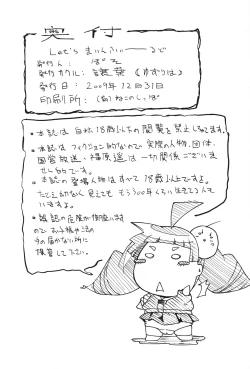 奥付
Let's まいんふぃ――るど
発行人：ぱ
発行サークル：(ゆずりは)
発行日：2009年12月31日
印刷所：(有)ねこのしっぽ
・本誌は18歳以下の閲覧を禁止してます。
・本誌はフィクション的なもので実際の人物、団体、
国営放送、福原遥は一切関係ございま
せんのです。
・本誌の登場人物はすべて18歳以上ですよ。
たとえ幼なく見えてももう500年くらい生きてるんで
いますよ。
・雑誌の
ので、お子様や
手の届かない所に
保管して下さい。